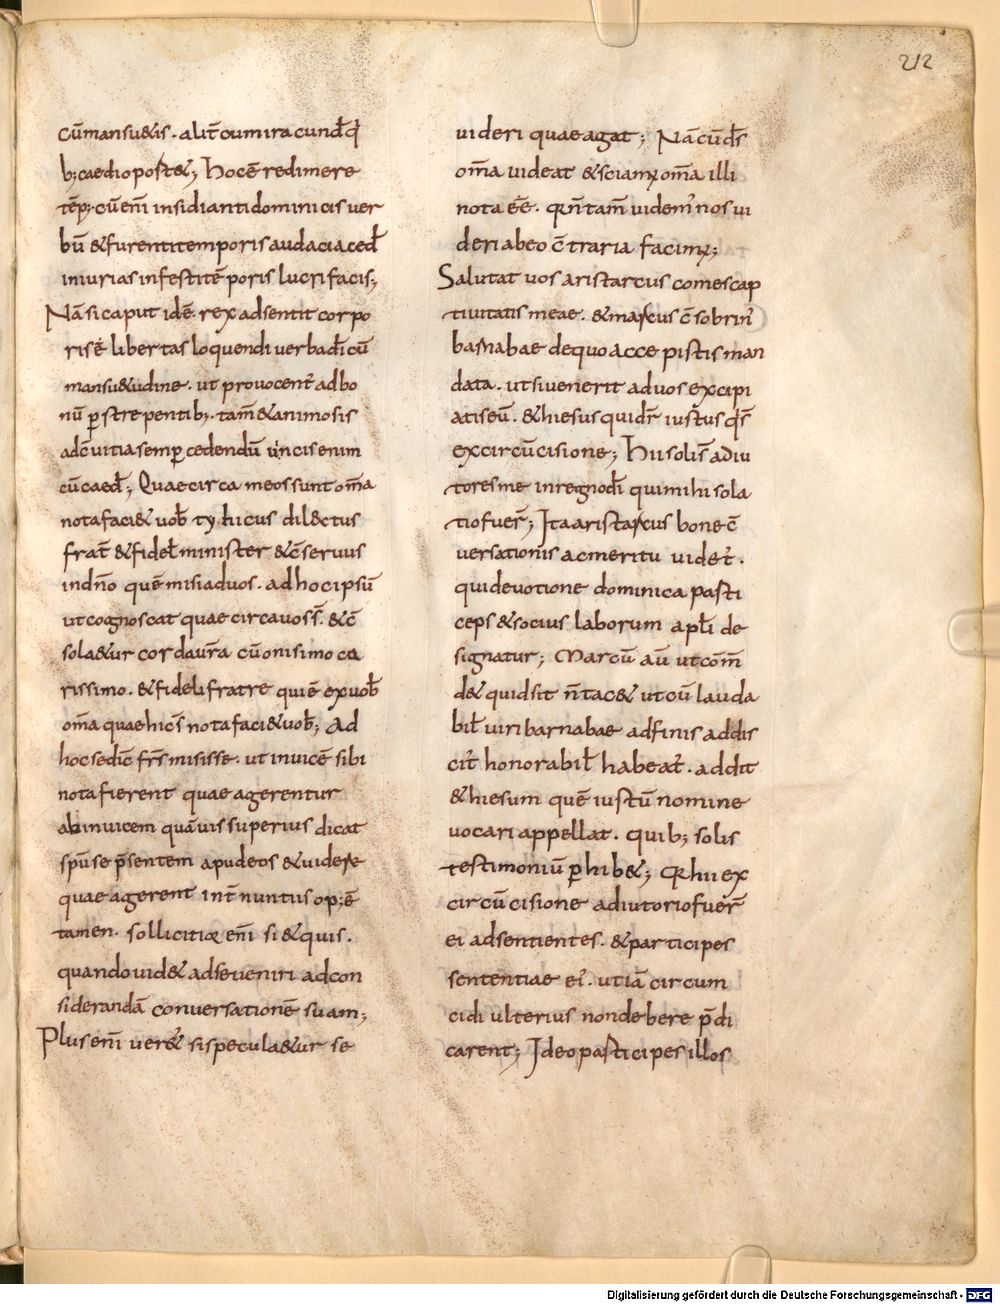 212
cū mansu&is. alit̄ cum iracund̄ q;
b; caedi opost&; hoc ē redimere
tēp;. cū enī insidianti dominicis ver
bū & furenti temporis audacia ced̄
iniurias infesti tēporis lucri facis;
Nā si caput idē. rex adsentit corpo
ris ē libertas loquendi verba dī cū
mansu&udine. ut provocent̄ ad bo
nū p̄strepentib;. tam̄ & animosis
ad cuitia semp̄ cedendū vincis enim
cū caed̄; Quae circa me os sunt om̄a
nota faci& uob̄ tyhicus dilectus
frat̄ & fidel̄ minister & c̄seruus
in dn̄o quē misi ad uos. ad hoc ipsū
ut cognoscat quae circa uos s̄. & c̄
sola&ur corda ur̄a cū onisimo ca
rissimo. & fideli fratre qui ē ex uob̄
om̄a quae hic s̄ nota faci& uob̄; Ad
hoc se dic̄ fr̄s misisse. ut inuicē sibi
nota fierent quae agerentur
ab inuicem quā uis superius dicat
spū se p̄sentem apud eos & uidere
quae agerent int̄ nuntus op; ē
tamen. sollicitiǫ enī si & quis.
quando uid& ad se ueniri ad con
siderandā conuersationē suam;
Plus enī uer&̄ si specula&ur se
uideri quae agat; Nā cū dſ̄
om̄a uideat & sciamꝰ om̄a illi
nota ēē. qn̄ tam̄ uidem̄ nos ui
deri ab eo c̄traria facimꝰ;
Salutat uos aristarcus comescap
tiuitatis meae. & marcus c̄sobrin̄
barnabae de quo accepistis man
data. ut si uenerit ad uos excipi
atis eū. & hiesus qui dr̄ iustus q̄ s̄
ex circūcisione; Hii soli s̄ adiu
tores me in regno dī qui mihi sola
tio fuer̄; Ita aristarcus bone c̄
uersationis ac meritu uidet̄.
qui deuotione dominica parti
ceps & socius laborum apl̄i de
signatur; Marcū aū ut com̄
d& quid sit n̄ tac& ut cū lauda
bil̄ uiri barnabae adfinis addis
cit̄ honorabil̄ habeat̄. addit
& hiesum quē iustū nomine
uocari appellat. quib; solis
testimoniū p̄hib&; Q hii ex
circūcisione adiutorio fuer̄
ei adsentientes. & participes
sententiae ei̾. ut iā circum
cidi ulterius non debere p̄di
carent; Ideo participes illos
Digitalisierung gefördert durch die Deutsche Forschungsgemeinschaft - DFG